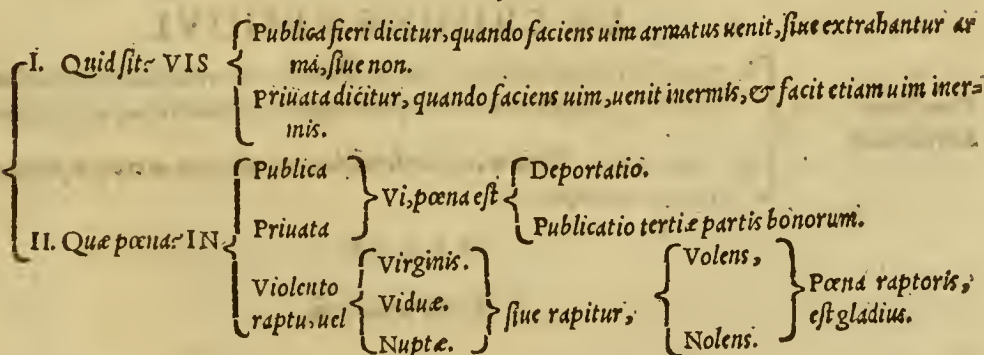 I. Quid sit: VIS
Publica fieri dicitur, quando faciens uim armatus uenit, siue extrahantur ar
ma, siue non.
Priuata dicitur, quando faciens uim, uenit inermis, & facit etiam uim iner=
mis.
II. Quæ pœna: IN
Publica
Priuata
Vi, pœna est
Deportatio.
Publicatio tertiæ partis bonorum.
Violento
raptu, uel
Virginis.
Viduæ.
Nuptæ.
siue rapitur,
Volens,
Nolens.
Pœna raptoris,
est gladius.